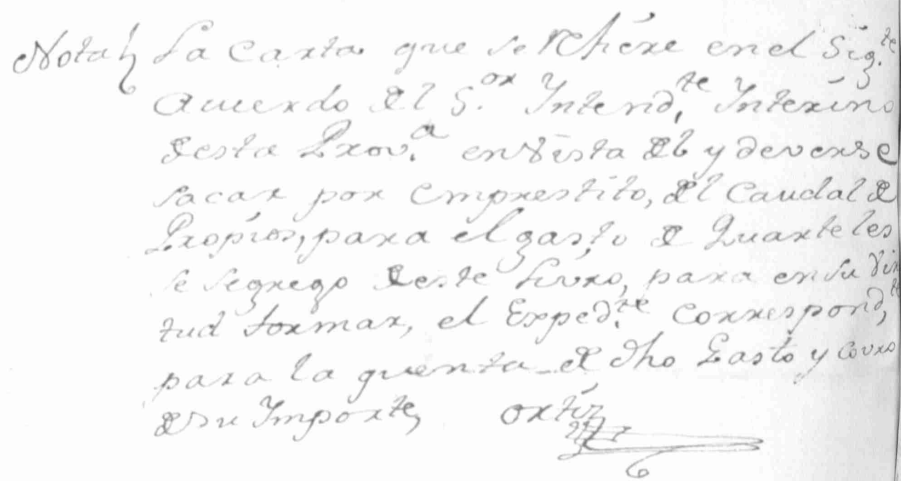 Nota La Carta que se refiere en el Sig.te
Acuerdo del S.or Intend.te Interino
desta Prov.a en vista del y deverse
sacar por emprestito, del Caudal de
Propios, para el gasto de Quarteles
se segrego deste Livro, para en su vir
tud formar, el Exped.te correspond.te
para la quenta de dho Gasto y covro
de su Importe, Ortiz